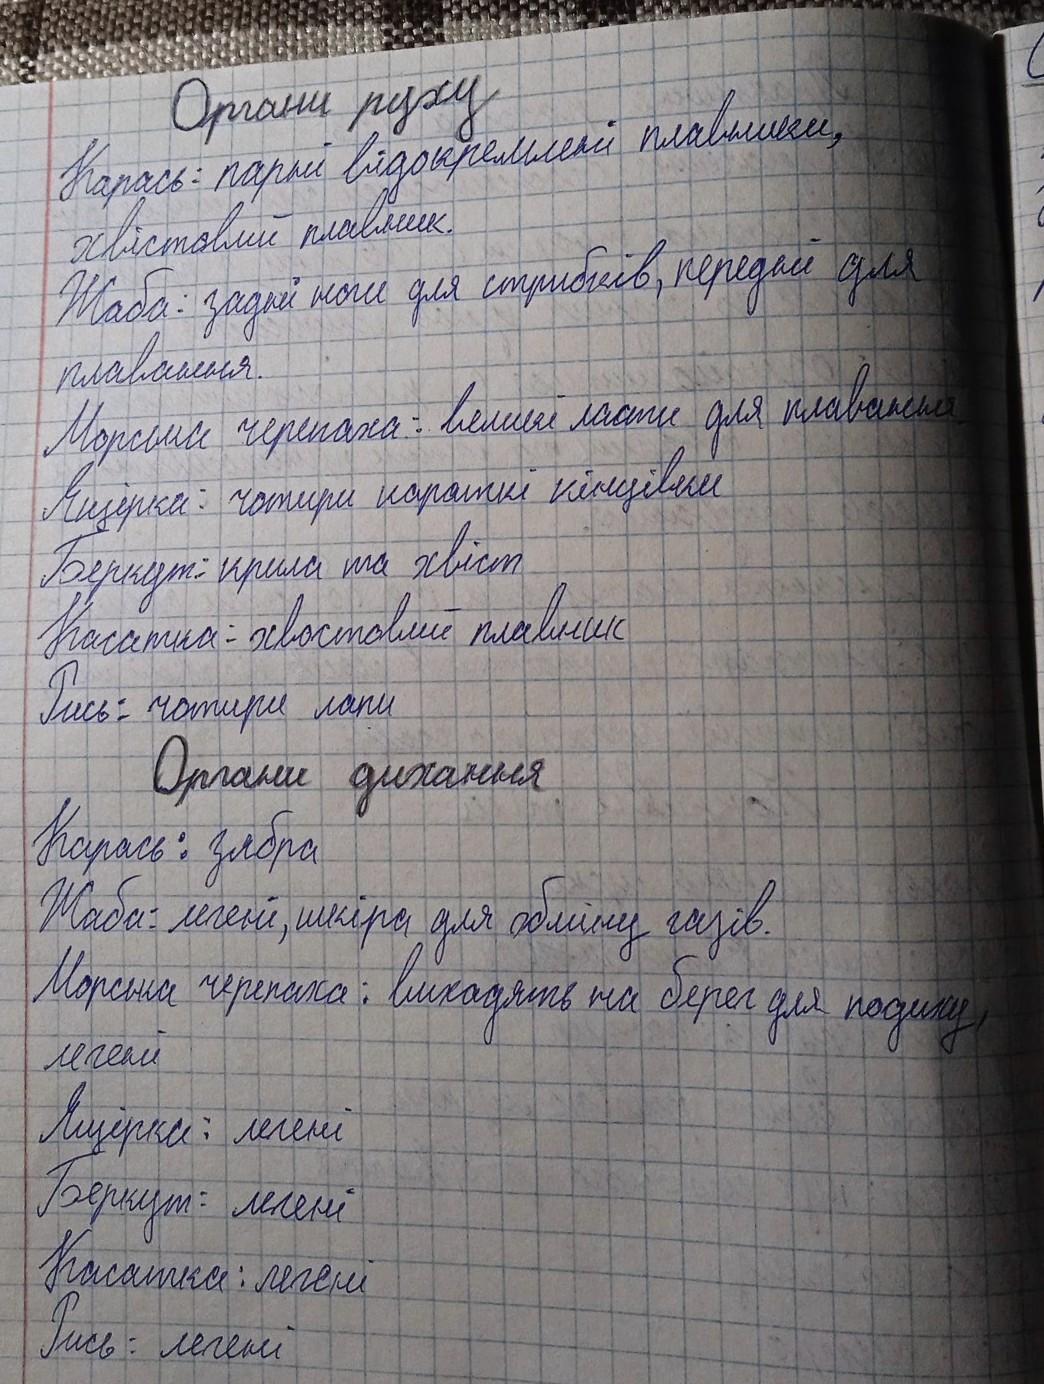 Органи руху
Карась: парні відокремлені плавники,
хвістовий плавник.
Жаба: задні ноги для стрибків, передні для
плавання.
Морська черепаха: великі ласти для плавання.
Ящірка: чотири кароткі кінцівки
Беркут: крила та хвіст
Касатка: хвостовий плавник
Рись: чотири лапи
Органи дихання
Карась: зябра
Жаба: легені, шкіра для обміну газів.
Морська черепаха: виходять на берег для подиху,
легені
Ящірка: легені
Беркут: легені
Касатка: легені
Рись: легені